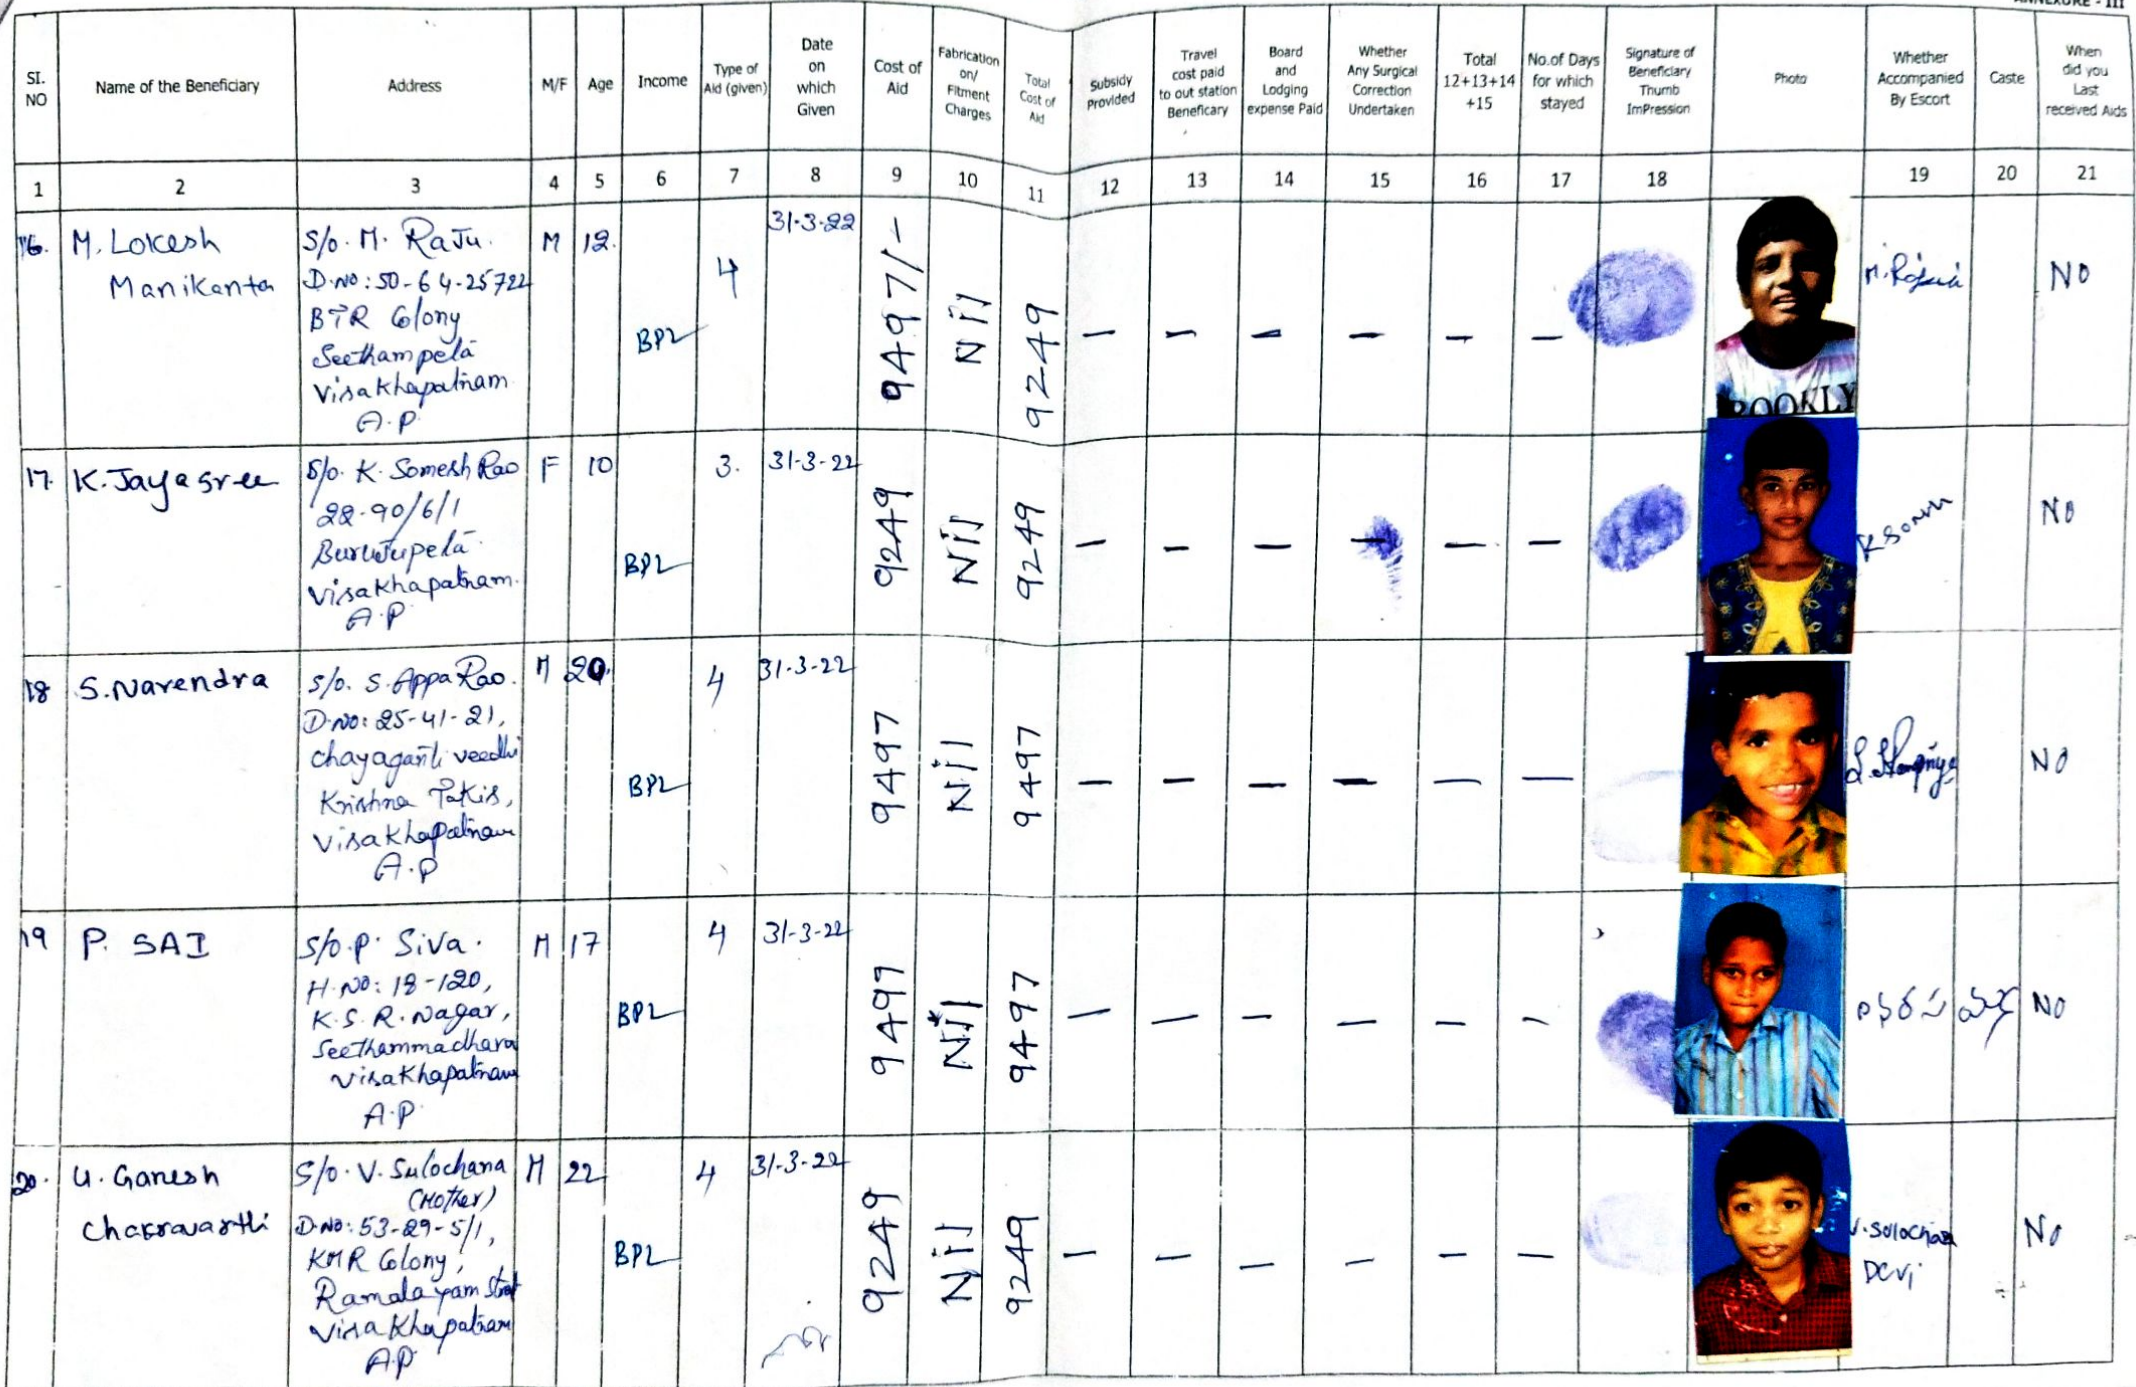 ANNEXURE - III
SI. NO
Name of the Beneficiary
Address
M/F
Age
Income
Type of Aid (given)
Date on which Given
Cost of Aid
Fabrication on/ Fitment Charges
Total Cost of Aid
Subsidy Provided
Travel cost paid to out station Beneficary
Board and Lodging expense Paid
Whether Any Surgical Correction Undertaken
Total 12+13+14 +15
No.of Days for which stayed
Signature of Beneficiary Thumb ImPression
Photo
Whether Accompanied By Escort
Caste
When did you Last received Aids
1 2 3 4 5 6 7 8 9 10 11 12 13 14 15 16 17 18 19 20 21
16. M. Lokesh Manikanta
S/o. M. Raju.
D.NO: 50-64-25722
BTR Colony
Seethampeta
Visakhapatnam
A.P.
M 12. BPL 4 31-3-22 9497/- Nil 9249 — — — — — —
BROOKLY
NO
17. K. Jayasree
S/o. K. Somesh Rao
22-90/6/1
Burujupeta
Visakhapatnam.
A.P
F 10 BPL 3. 31-3-22 9249 Nil 9249 — — — — — —
NO
18 S. Narendra
S/o. S. Appa Rao.
D.NO: 25-41-21,
Chayaganti veedhi
Krishna Takis,
Visakhapatnam
A.P
M 20. BPL 4 31-3-22 9497 Nil 9497 — — — — — —
NO
19 P. SAI
S/o. P. Siva.
H.NO: 18-120,
K.S.R. Nagar,
Seethammadhara
Visakhapatnam
A.P.
M 17 BPL 4 31-3-22 9497 Nil 9497 — — — — — —
NO
20. U. Ganesh Chakravarthi
S/o. V. Sulochana
(Mother)
D.NO: 53-29-5/1,
KMR Colony,
Ramalayam Street
Visakhapatnam
A.P
M 22 BPL 4 31-3-22 9249 Nil 9249 — — — — — —
V. Sulochana
Devi
NO